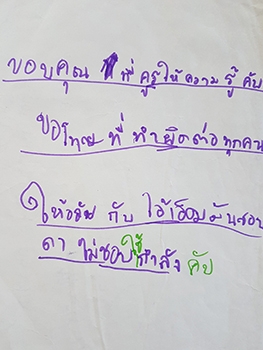 ขอบคุณ ที่ครูให้ความรู้ คับ
ขอโทษที่ทำผิดต่อทุกคน
ให้อภัย กับ ไอ้เรื่องมันสอบ
ตา ไม่ชอบใช้กำลัง คับ